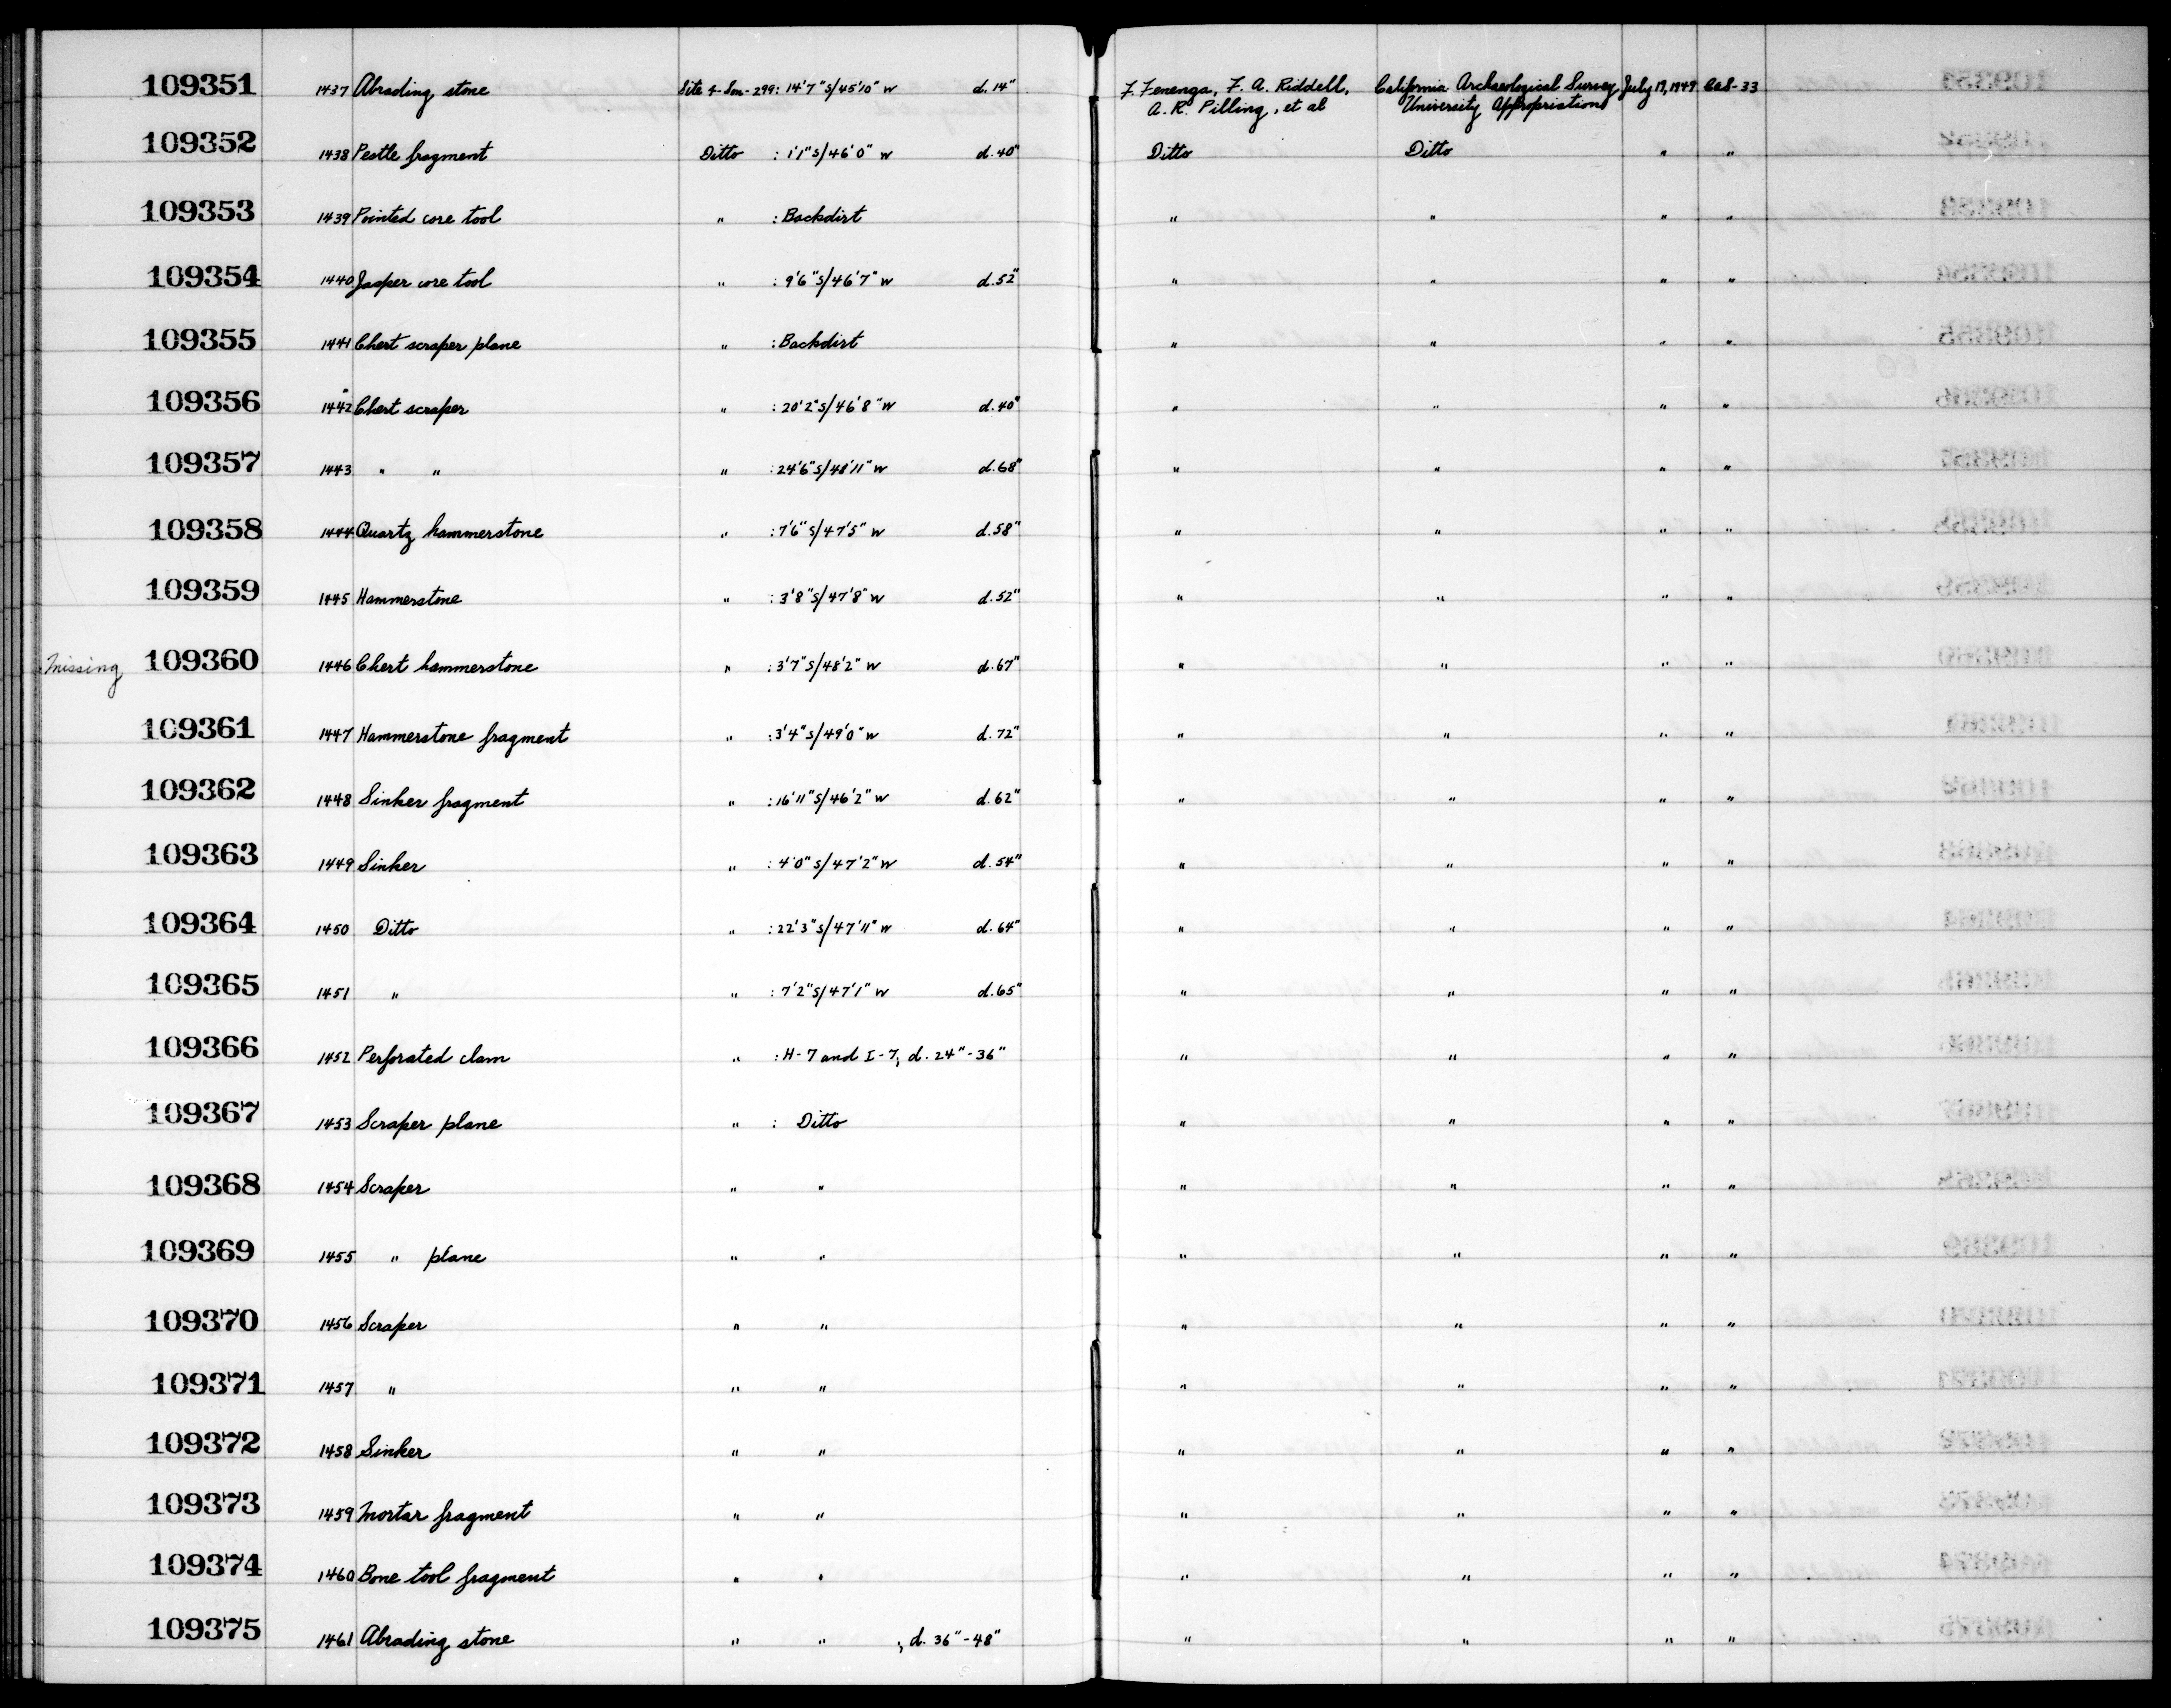 109351 1437 Abrading stone Site 4-Son-299: 14'7"S/45'10" W d. 14" F. Fenenga, F. A. Riddell, California Archaeological Survey July 19, 1949 CAS-33
A. R. Pilling, et al University Appropriations
109352 1438 Pestle fragment Ditto : 1'1"S/46'0" W d. 40" Ditto Ditto " "
109353 1439 Pointed core tool " : Backdirt " " " "
109354 1440 Jasper core tool " : 9'6"S/46'7" W d. 52" " " " "
109355 1441 Chert scraper plane " : Backdirt " " " "
109356 1442 Chert scraper " : 20'2"S/46'8" W d. 40" " " " "
109357 1443 " " " : 24'6"S/48'11" W d. 68" " " " "
109358 1444 Quartz hammerstone " : 7'6"S/47'5" W d. 58" " " " "
109359 1445 Hammerstone " : 3'8"S/47'8" W d. 52" " " " "
Missing 109360 1446 Chert hammerstone " : 3'7"S/48'2" W d. 67" " " " "
109361 1447 Hammerstone fragment " : 3'4"S/49'0" W d. 72" " " " "
109362 1448 Sinker fragment " : 16'11"S/46'2" W d. 62" " " " "
109363 1449 Sinker " : 4'0"S/47'2" W d. 54" " " " "
109364 1450 Ditto " : 22'3"S/47'11" W d. 64" " " " "
109365 1451 " " : 7'2"S/47'1" W d. 65" " " " "
109366 1452 Perforated clam " : H-7 and I-7, d. 24"-36" " " " "
109367 1453 Scraper plane " : Ditto " " " "
109368 1454 Scraper " " " " " "
109369 1455 " plane " " " " " "
109370 1456 Scraper " " " " " "
109371 1457 " " " " " " "
109372 1458 Sinker " " " " " "
109373 1459 Mortar fragment " " " " " "
109374 1460 Bone tool fragment " " " " " "
109375 1461 Abrading stone " " , d. 36"-48" " " " "